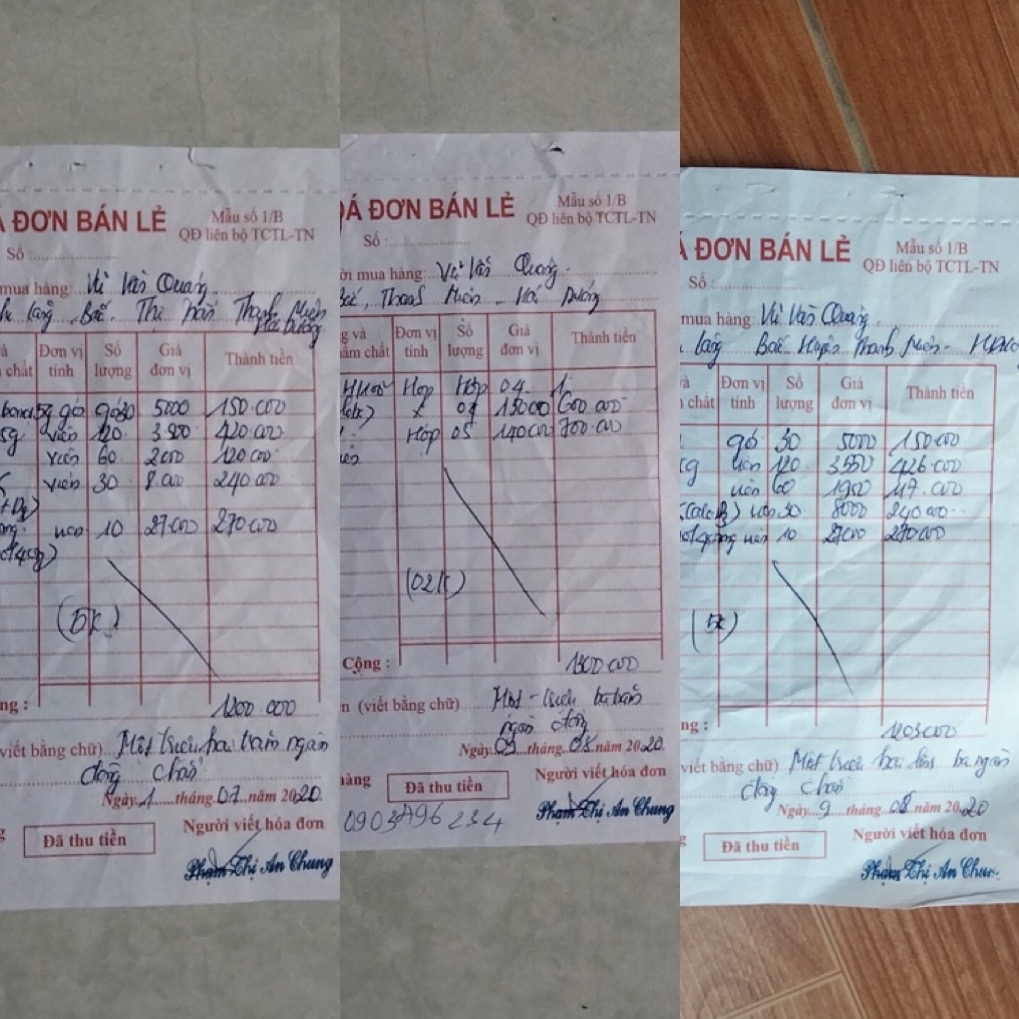 ĐƠN BÁN LẺ
Mẫu số 1/B
QĐ liên bộ TCTL-TN
Số :
mua hàng: Vũ Văn Quang
Bắc. Thị trấn Thanh Miện
Hải Dương
Đơn vị tính Số lượng Giá đơn vị Thành tiền
chất
5g gói gói 30 5000 150.000
5g viên 120 3500 420.000
viên 60 2000 120.000
viên 30 8.000 240.000
viên 10 27000 270.000
(5k)
1200 000
viết bằng chữ) Một triệu hai trăm ngàn
đồng chẵn
Ngày 1 tháng 07 năm 2020
Đã thu tiền
Người viết hóa đơn
Phạm Thị An Chung
ĐƠN BÁN LẺ
Mẫu số 1/B
QĐ liên bộ TCTL-TN
Số :
mua hàng: Vũ Văn Quang
Bắc, Thanh Miện - Hải Dương
Đơn vị tính Số lượng Giá đơn vị Thành tiền
Hộp Hộp 04
04 15000 600.000
Hộp 05 140000 700.000
(02k)
Cộng : 1300 000
(viết bằng chữ) Một triệu ba trăm
ngàn đồng
Ngày 09 tháng 08 năm 2020
hàng
Đã thu tiền
Người viết hóa đơn
Phạm Thị An Chung
0903496234
ĐƠN BÁN LẺ
Mẫu số 1/B
QĐ liên bộ TCTL-TN
Số :
mua hàng: Vũ Văn Quang
Bắc Huyện Thanh Miện - H Dương
Đơn vị tính Số lượng Giá đơn vị Thành tiền
chất
gó 30 5000 150.000
viên 120 3550 426.000
viên 60 1950 117.000
viên 30 8000 240.000
viên 10 27000 270.000
(5k)
1203000
viết bằng chữ) Một triệu hai trăm ba ngàn
đồng chẵn
Ngày 9 tháng 08 năm 2020
Đã thu tiền
Người viết hóa đơn
Phạm Thị An Chung